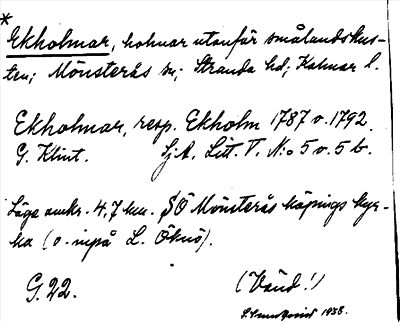 *
Ekholmar, holmar utanför smålandskus-
ten; Mönsterås sn; Stranda hd; Kalmar l.
Ekholmar, resp. Ekholm 1787 o. 1792.
G. Klint. Sj.A. Litt. T. N:o 5 o. 5 b.
Läge omkr. 4,7 km. SÖ Mönsterås köpings kyr-
ka (o. inpå L. Öknö).
G. 22. (Vänd!)
1938.